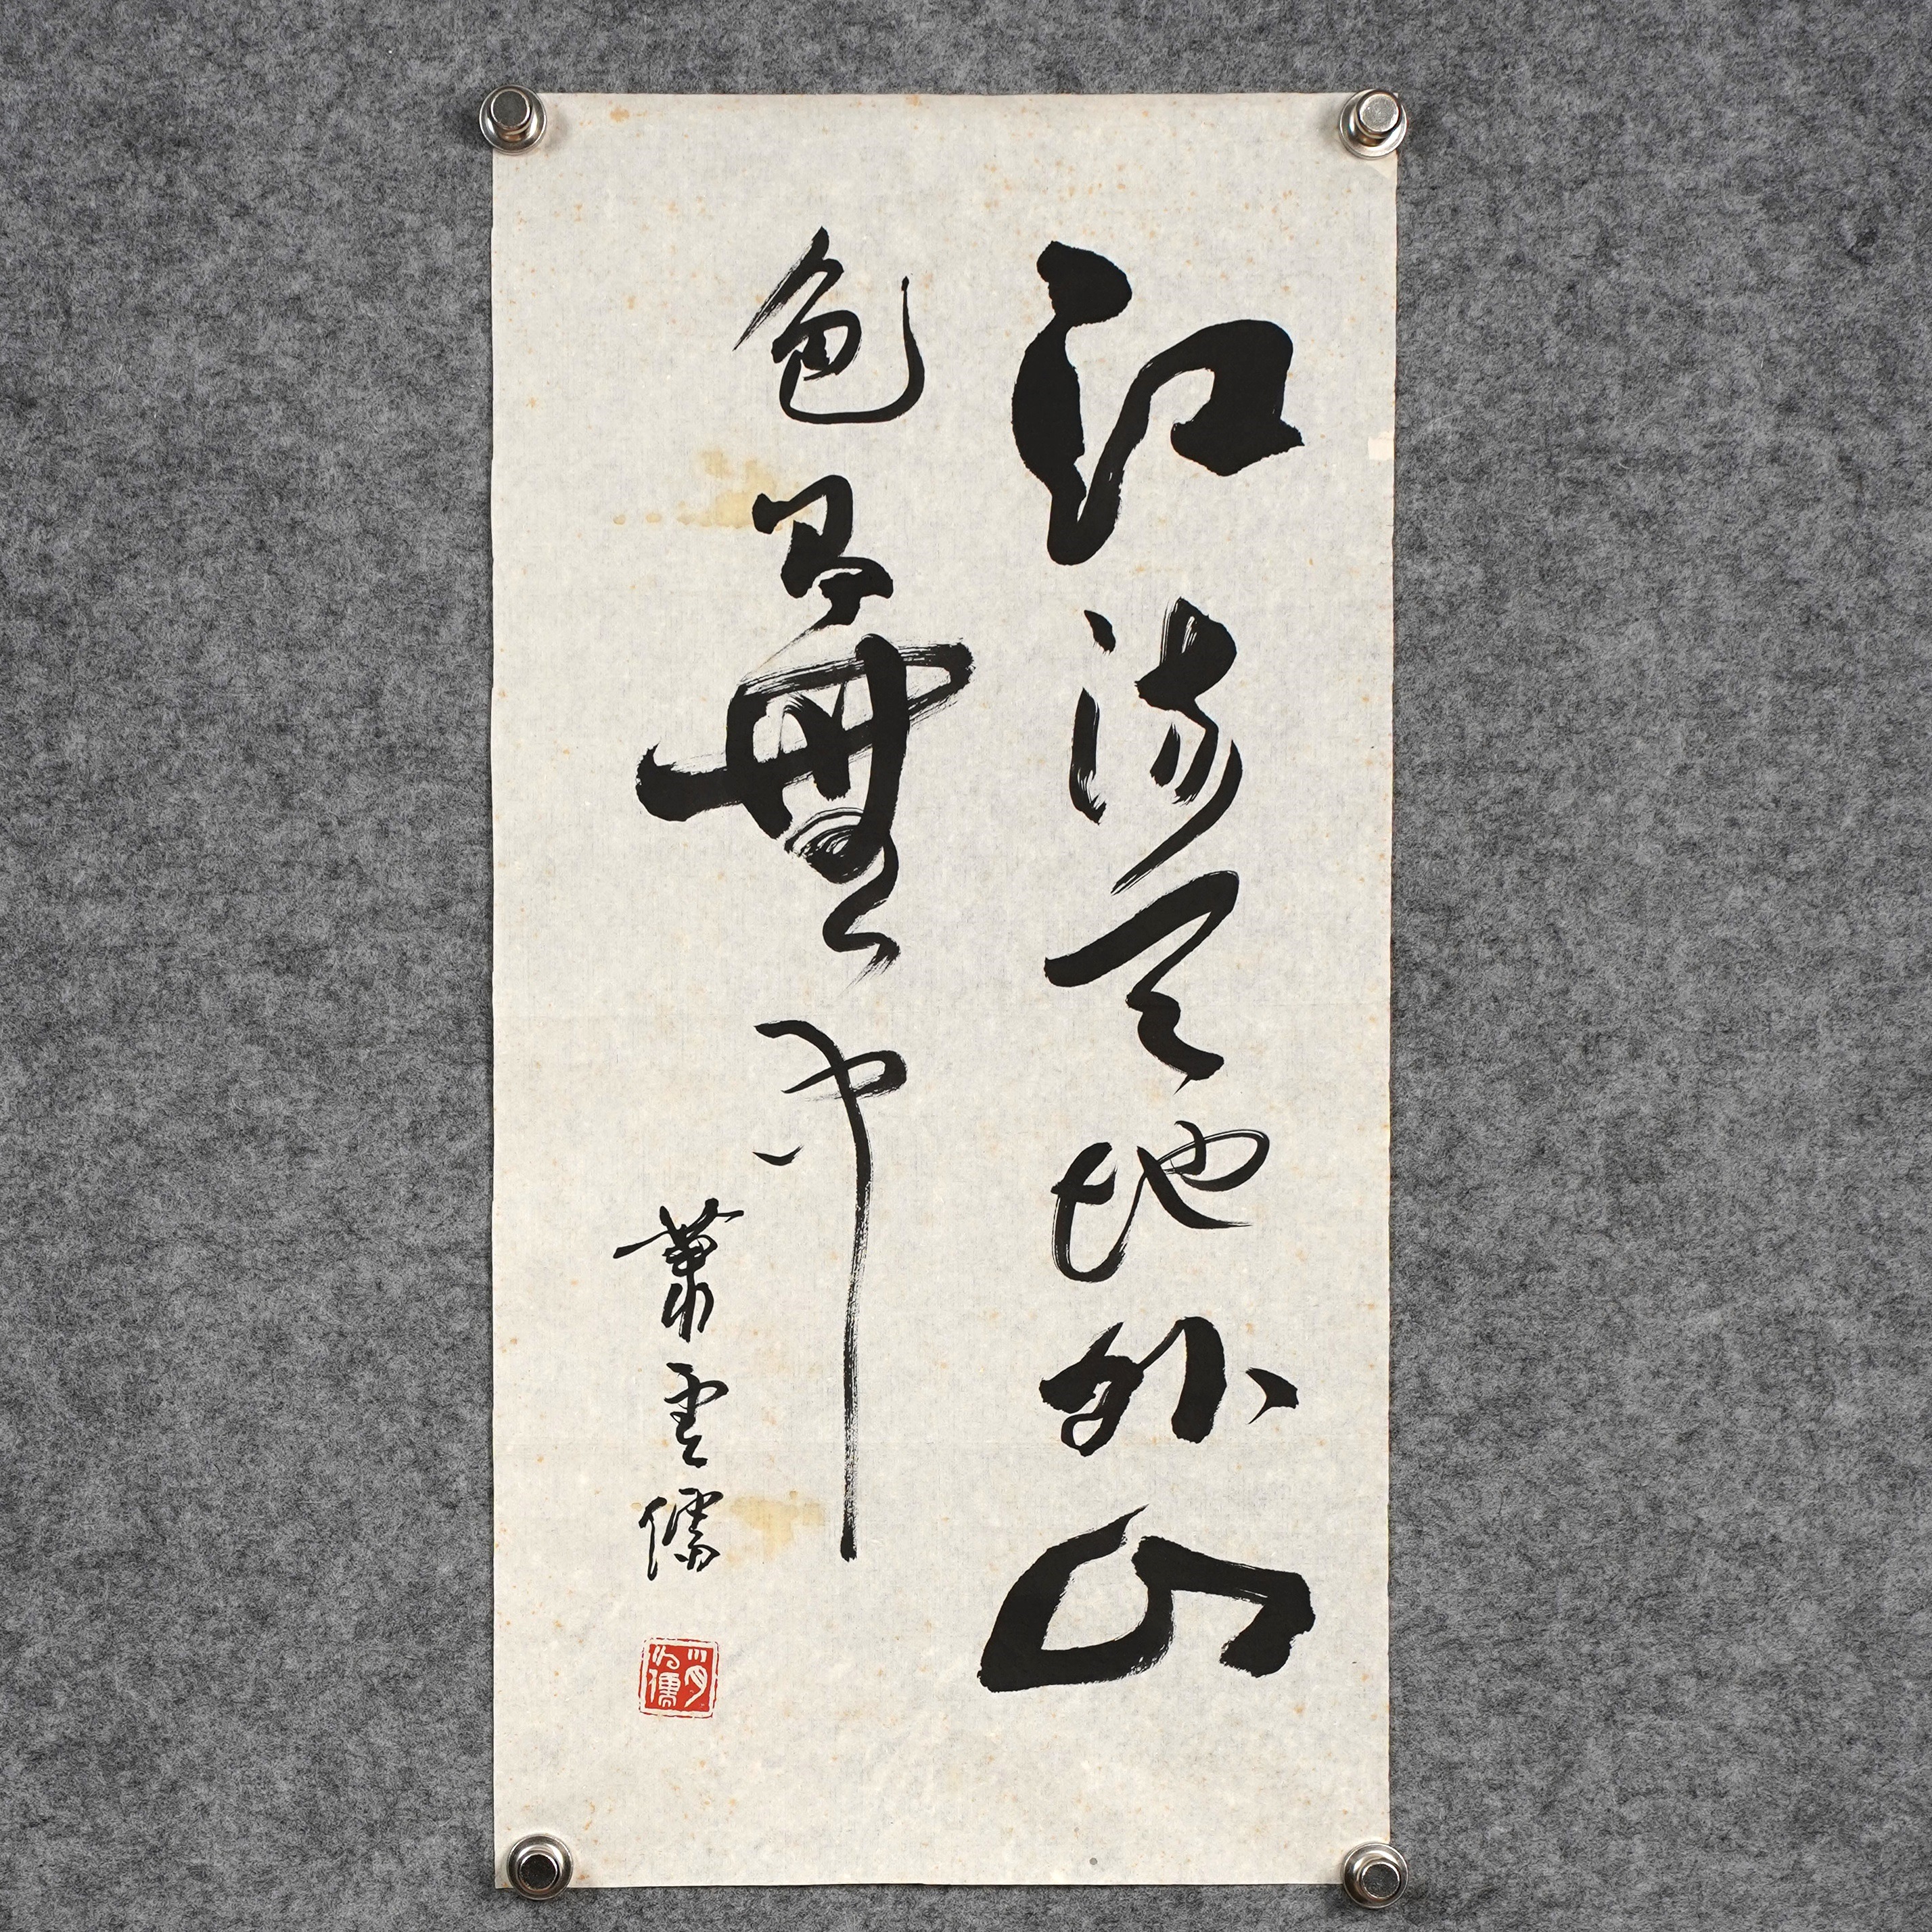 江流天地外山
色有無中
蕭雲儒
肖云儒